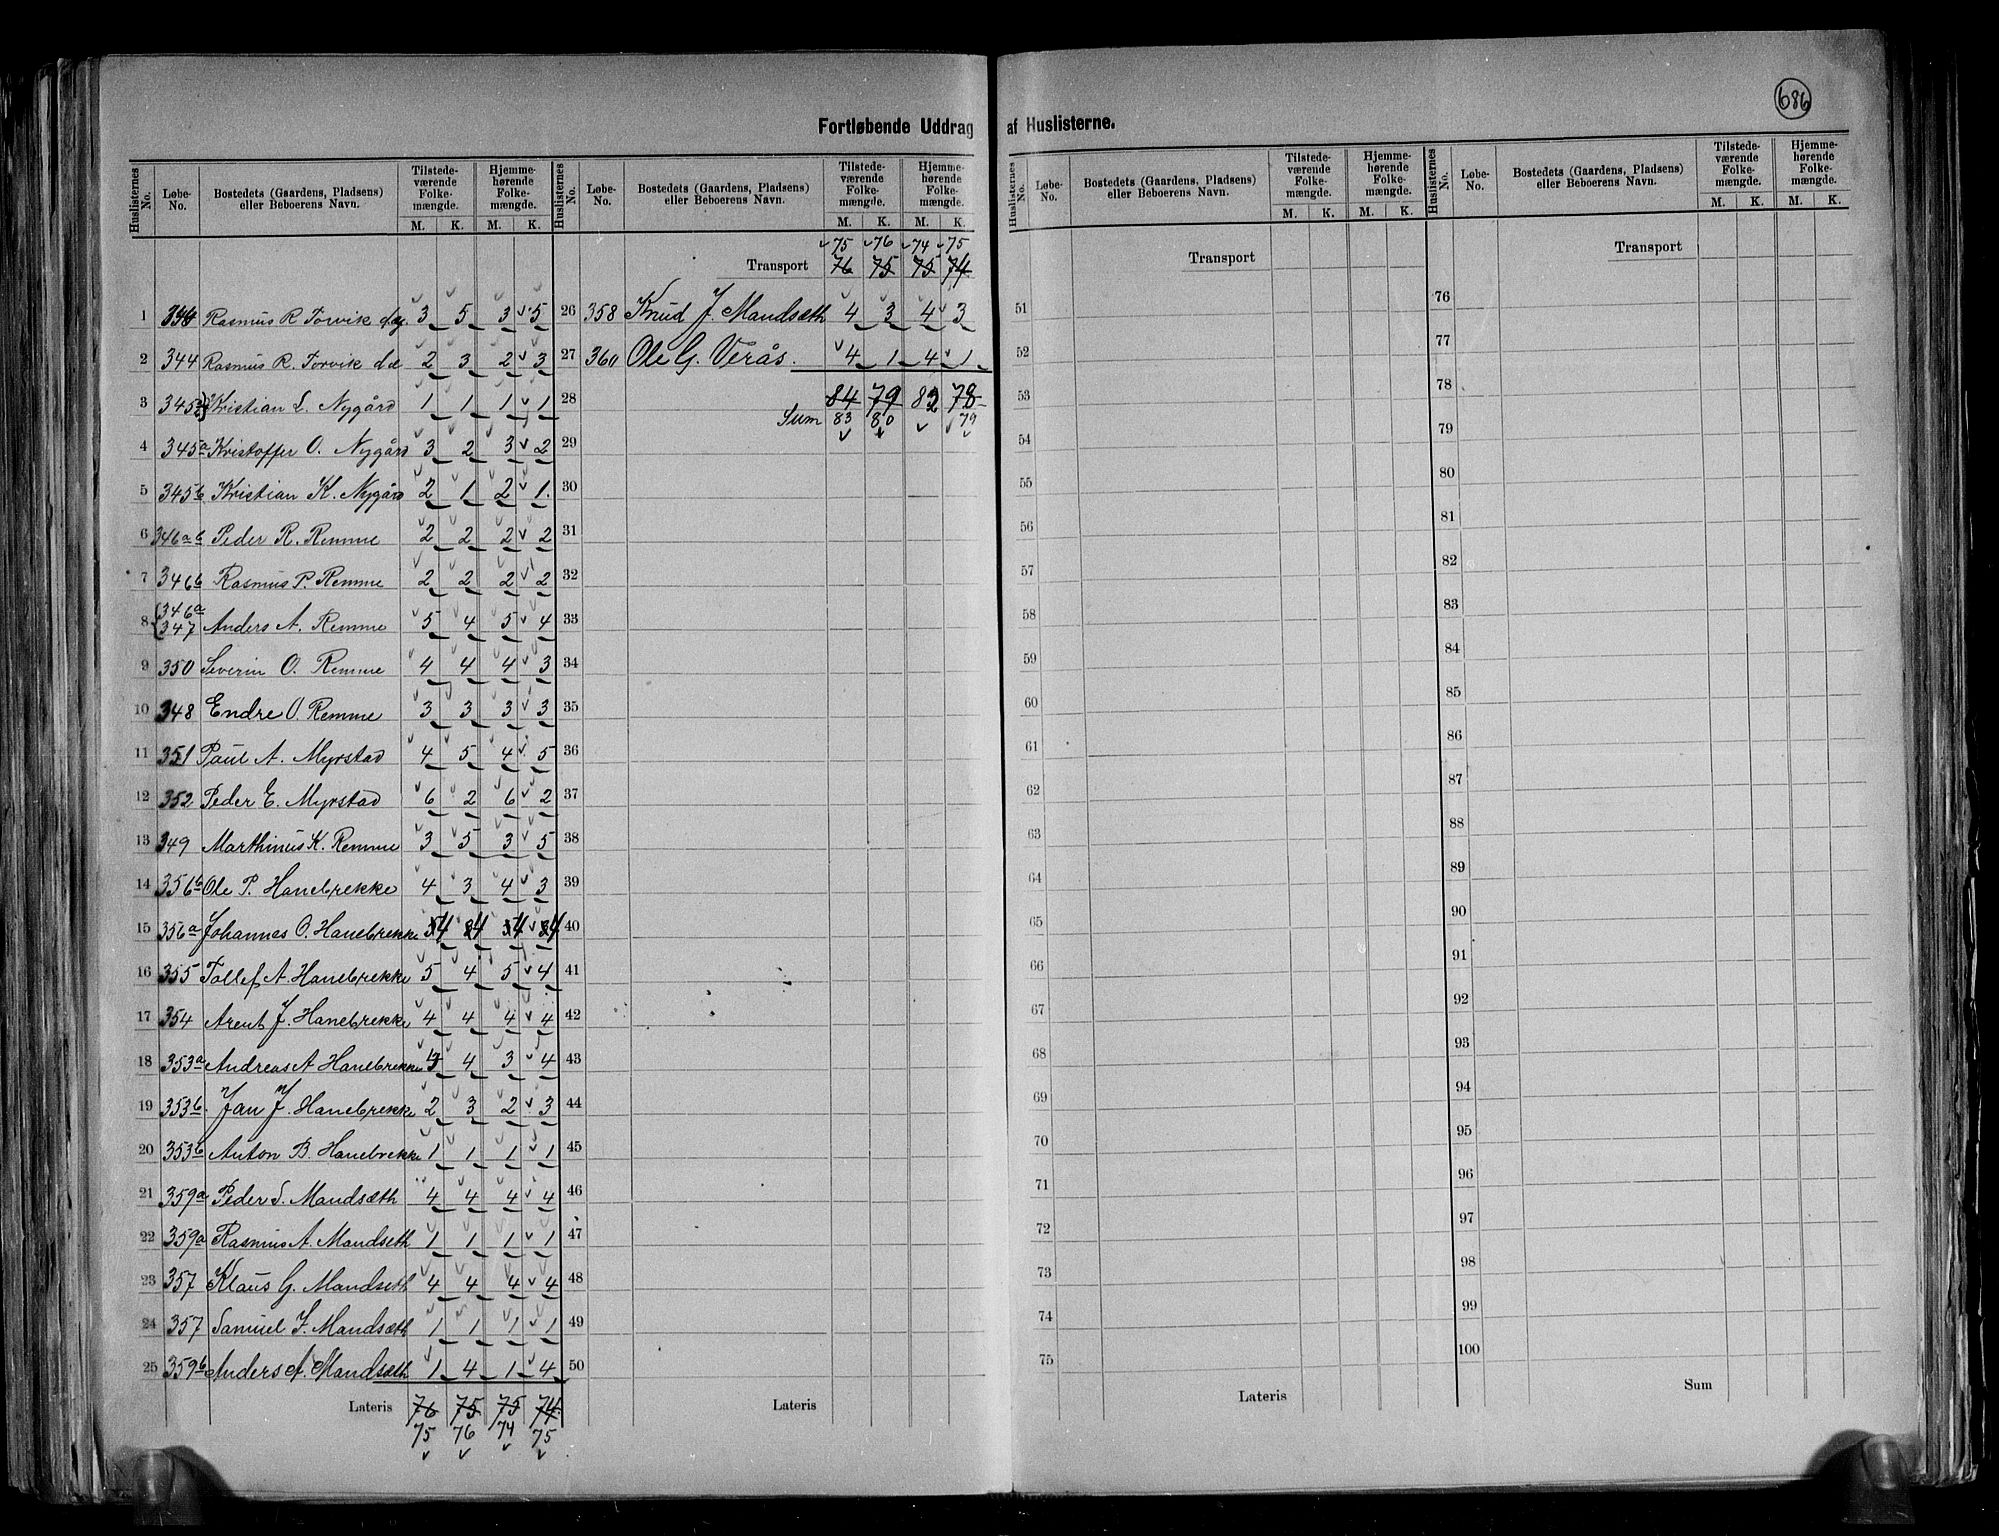 686
Fortløbende Uddrag af Huslisterne.
Huslisternes No. Løbe-No. Bostedets (Gaardens, Pladsens) eller Beboerens Navn. Tilstedeværende Folkemængde. M. K. Hjemmehørende Folkemængde. M. K.
1 Rasmus R Torvik 3 5 3 5
2 344 Rasmus R. Torvik 2 3 2 3
3 345 Kristian L. Nygård 1 1 1 1
4 345a Kristoffer O. Nygård 3 2 3 2
5 345b Kristian K. Nygård 2 1 2 1
6 346a b Peder R. Remme 2 2 2 2
7 346b Rasmus P. Remme 2 2 2 2
8 346a 347 Anders A. Remme 5 4 5 4
9 350 Severin O. Remme 4 4 4 3
10 348 Endre O. Remme 3 3 3 3
11 351 Paul A. Myrstad 4 5 4 5
12 352 Peder E. Myrstad 6 2 6 2
13 349 Marthinus K. Remme 3 5 3 5
14 356b Ole P. Hanebrekke 4 3 4 3
15 356a Johannes O. Hanebrekke 4 4 4 4
16 355 Tollef A. Hanebrekke 5 4 5 4
17 354 Arent J. Hanebrekke 4 4 4 4
18 353a Andreas A Hanebrekke 3 4 3 4
19 353b Jan J. Hanebrekke 2 3 2 3
20 353b Anton B. Hanebrekke 1 1 1 1
21 359a Peder S. Mandsæth 4 4 4 4
22 359a Rasmus A. Mandseth 1 1 1 1
23 357 Klaus G. Mandseth 4 4 4 4
24 357 Samuel J. Mandsæth 1 1 1 1
25 359b Anders A. Mandsæth 1 4 1 4
Lateris 76 75 75 74
75 76 74 75
Huslisternes No. Løbe-No. Bostedets (Gaardens, Pladsens) eller Beboerens Navn. Tilstedeværende Folkemængde. M. K. Hjemmehørende Folkemængde. M. K.
75 76 74 75
Transport 76 75 75 74
26 358 Knud J. Mandsæth 4 3 4 3
27 360 Ole G. Verås. 4 1 4 1
28 84 79 82 78
Sum 83 80 79
29
30
31
32
33
34
35
36
37
38
39
40
41
42
43
44
45
46
47
48
49
50
Lateris
Huslisternes No. Løbe-No. Bostedets (Gaardens, Pladsens) eller Beboerens Navn. Tilstedeværende Folkemængde. M. K. Hjemmehørende Folkemængde. M. K.
Transport
51
52
53
54
55
56
57
58
59
60
61
62
63
64
65
66
67
68
69
70
71
72
73
74
75
Lateris
Huslisternes No. Løbe-No. Bostedets (Gaardens, Pladsens) eller Beboerens Navn. Tilstedeværende Folkemængde. M. K. Hjemmehørende Folkemængde. M. K.
Transport
76
77
78
79
80
81
82
83
84
85
86
87
88
89
90
91
92
93
94
95
96
97
98
99
100
Sum